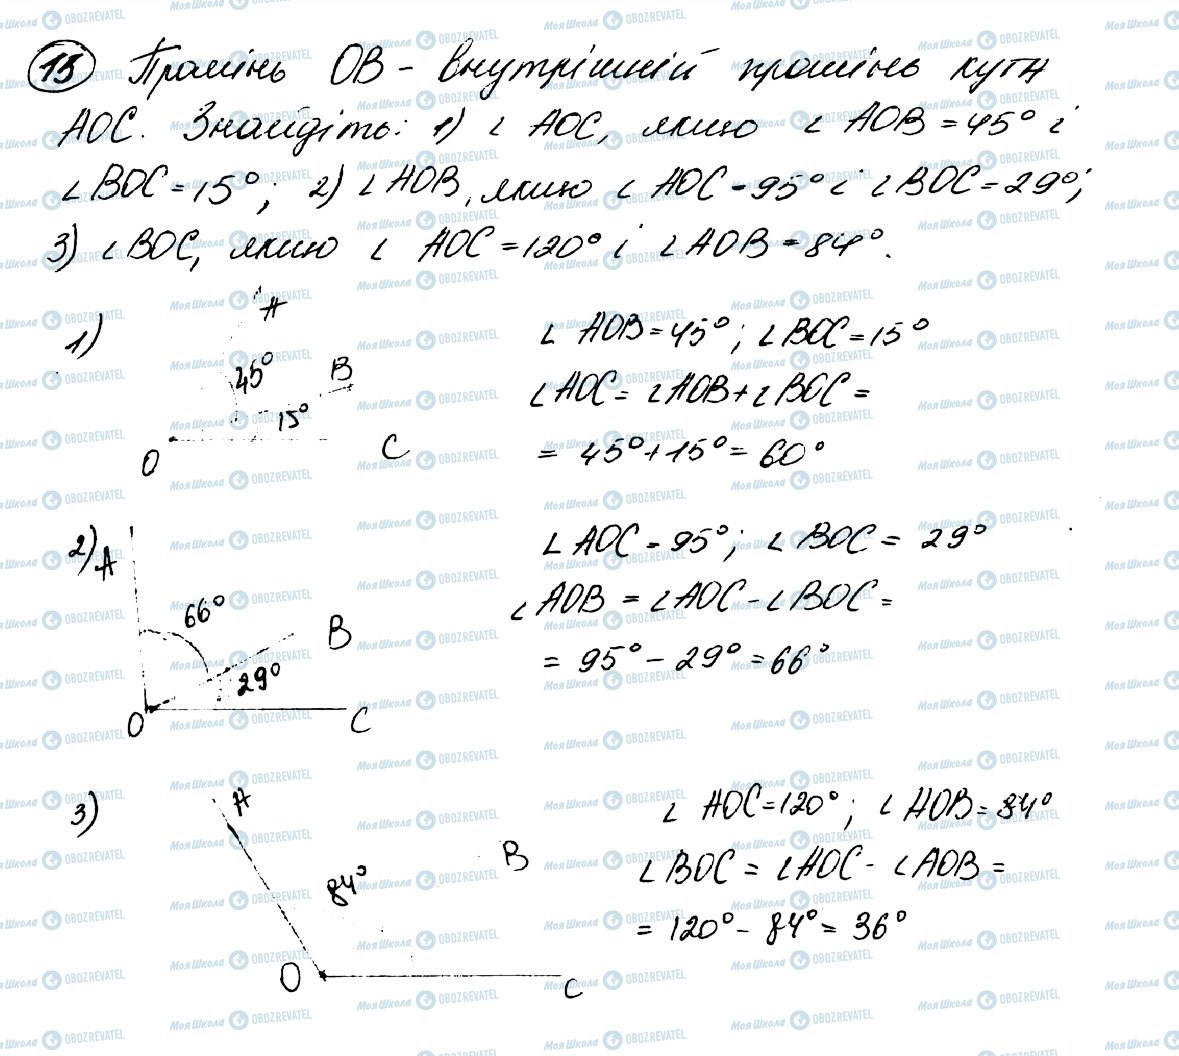 13 Промінь OB - внутрішній промінь кута
AOC. Знайдіть: 1) ∠ AOC, якщо ∠ AOB = 45° і
∠ BOC = 15°; 2) ∠ AOB, якщо ∠ AOC = 95° і ∠ BOC = 29°;
3) ∠ BOC, якщо ∠ AOC = 120° і ∠ AOB = 84°.
1)
A
45°
B
15°
O
C
∠ AOB = 45°; ∠ BOC = 15°
∠ AOC = ∠ AOB + ∠ BOC =
= 45° + 15° = 60°
2)
A
66°
B
29°
O
C
∠ AOC = 95°; ∠ BOC = 29°
∠ AOB = ∠ AOC - ∠ BOC =
= 95° - 29° = 66°
3)
A
B
84°
O
C
∠ AOC = 120°; ∠ AOB = 84°
∠ BOC = ∠ AOC - ∠ AOB =
= 120° - 84° = 36°
МояШкола OBOZREVATEL